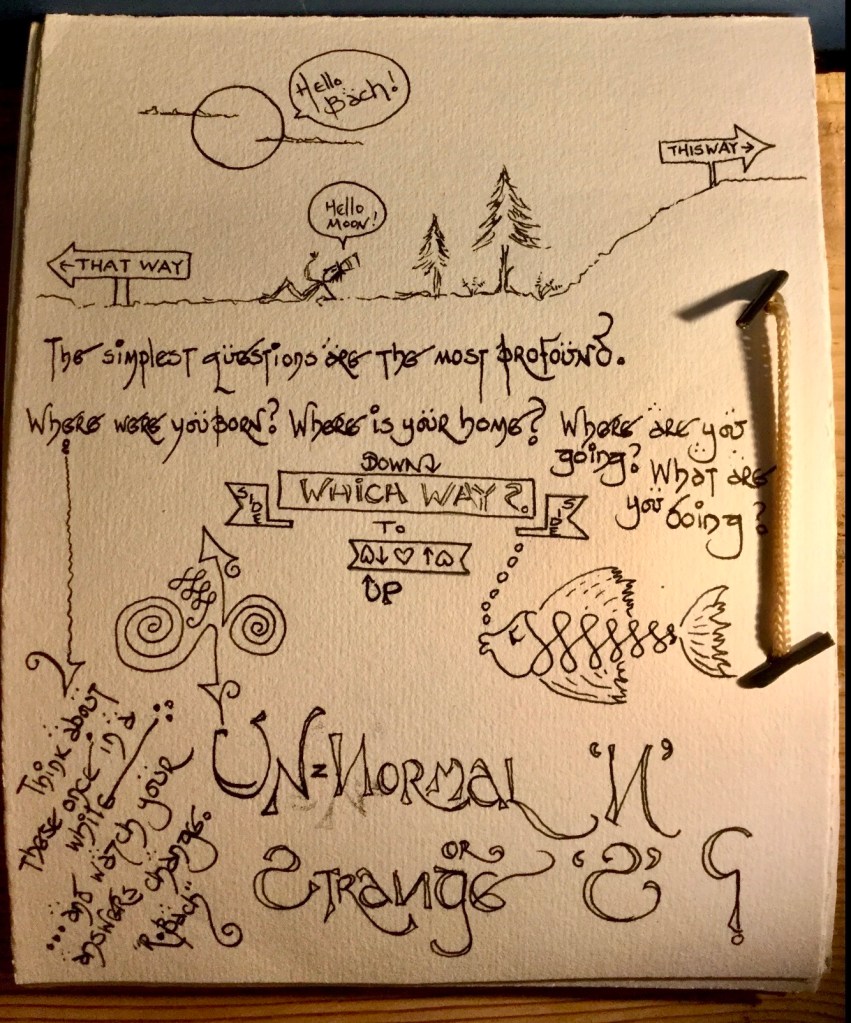 Hello
Bach!
THIS WAY →
Hello
MOON!
← THAT WAY
The simplest questions are the most profound.
Where were you born? Where is your home? Where are you
going? What are
you doing?
DOWN
SIDE
WHICH WAY ?.
SIDE
TO
UP
Think about
these once in a
while
...and watch your
answers change.
"RobBach"
UN=NORMAL 'N'
OR
STRANGE "S" ?